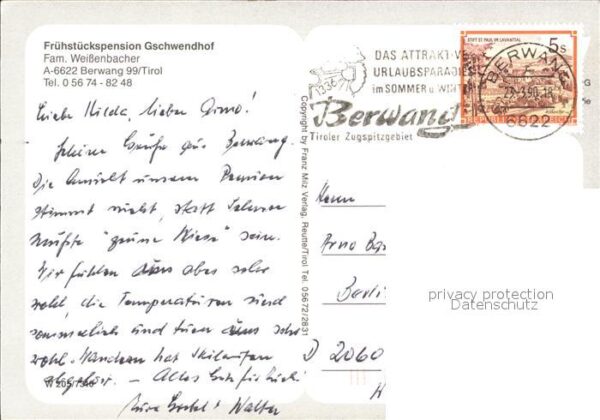 Frühstückspension Gschwendhof
Fam. Weißenbacher
A-6622 Berwang 99/Tirol
Tel. 0 56 74 - 82 48
Liebe Hilda, lieber Arno!
Schöne Grüße aus Berwang.
Die Ansicht unserer Pension
stimmt nicht, statt Schnee
müßte "grüne Wiese" sein.
Wir fühlen uns aber sehr
wohl, die Temperaturen sind
sommerlich und tuen uns sehr
wohl. Wandern hat Skilaufen
abgelöst. – Alles Gute für Euch!
Eure Walter
W 205/7346
Copyright by Franz Milz Verlag, Reutte/Tirol Tel. 05672/2831
DAS ATTRAKTIVE
URLAUBSPARADIES
im SOMMER u. WINTER
1336m
Berwang
Tiroler Zugspitzgebiet
STIFT ST. PAUL IM LAVANTTAL
5 S
REPUBLIK ÖSTERREICH
BERWANG
6622
Herrn
Arno
Berlin
D 2060
privacy protection
Datenschutz